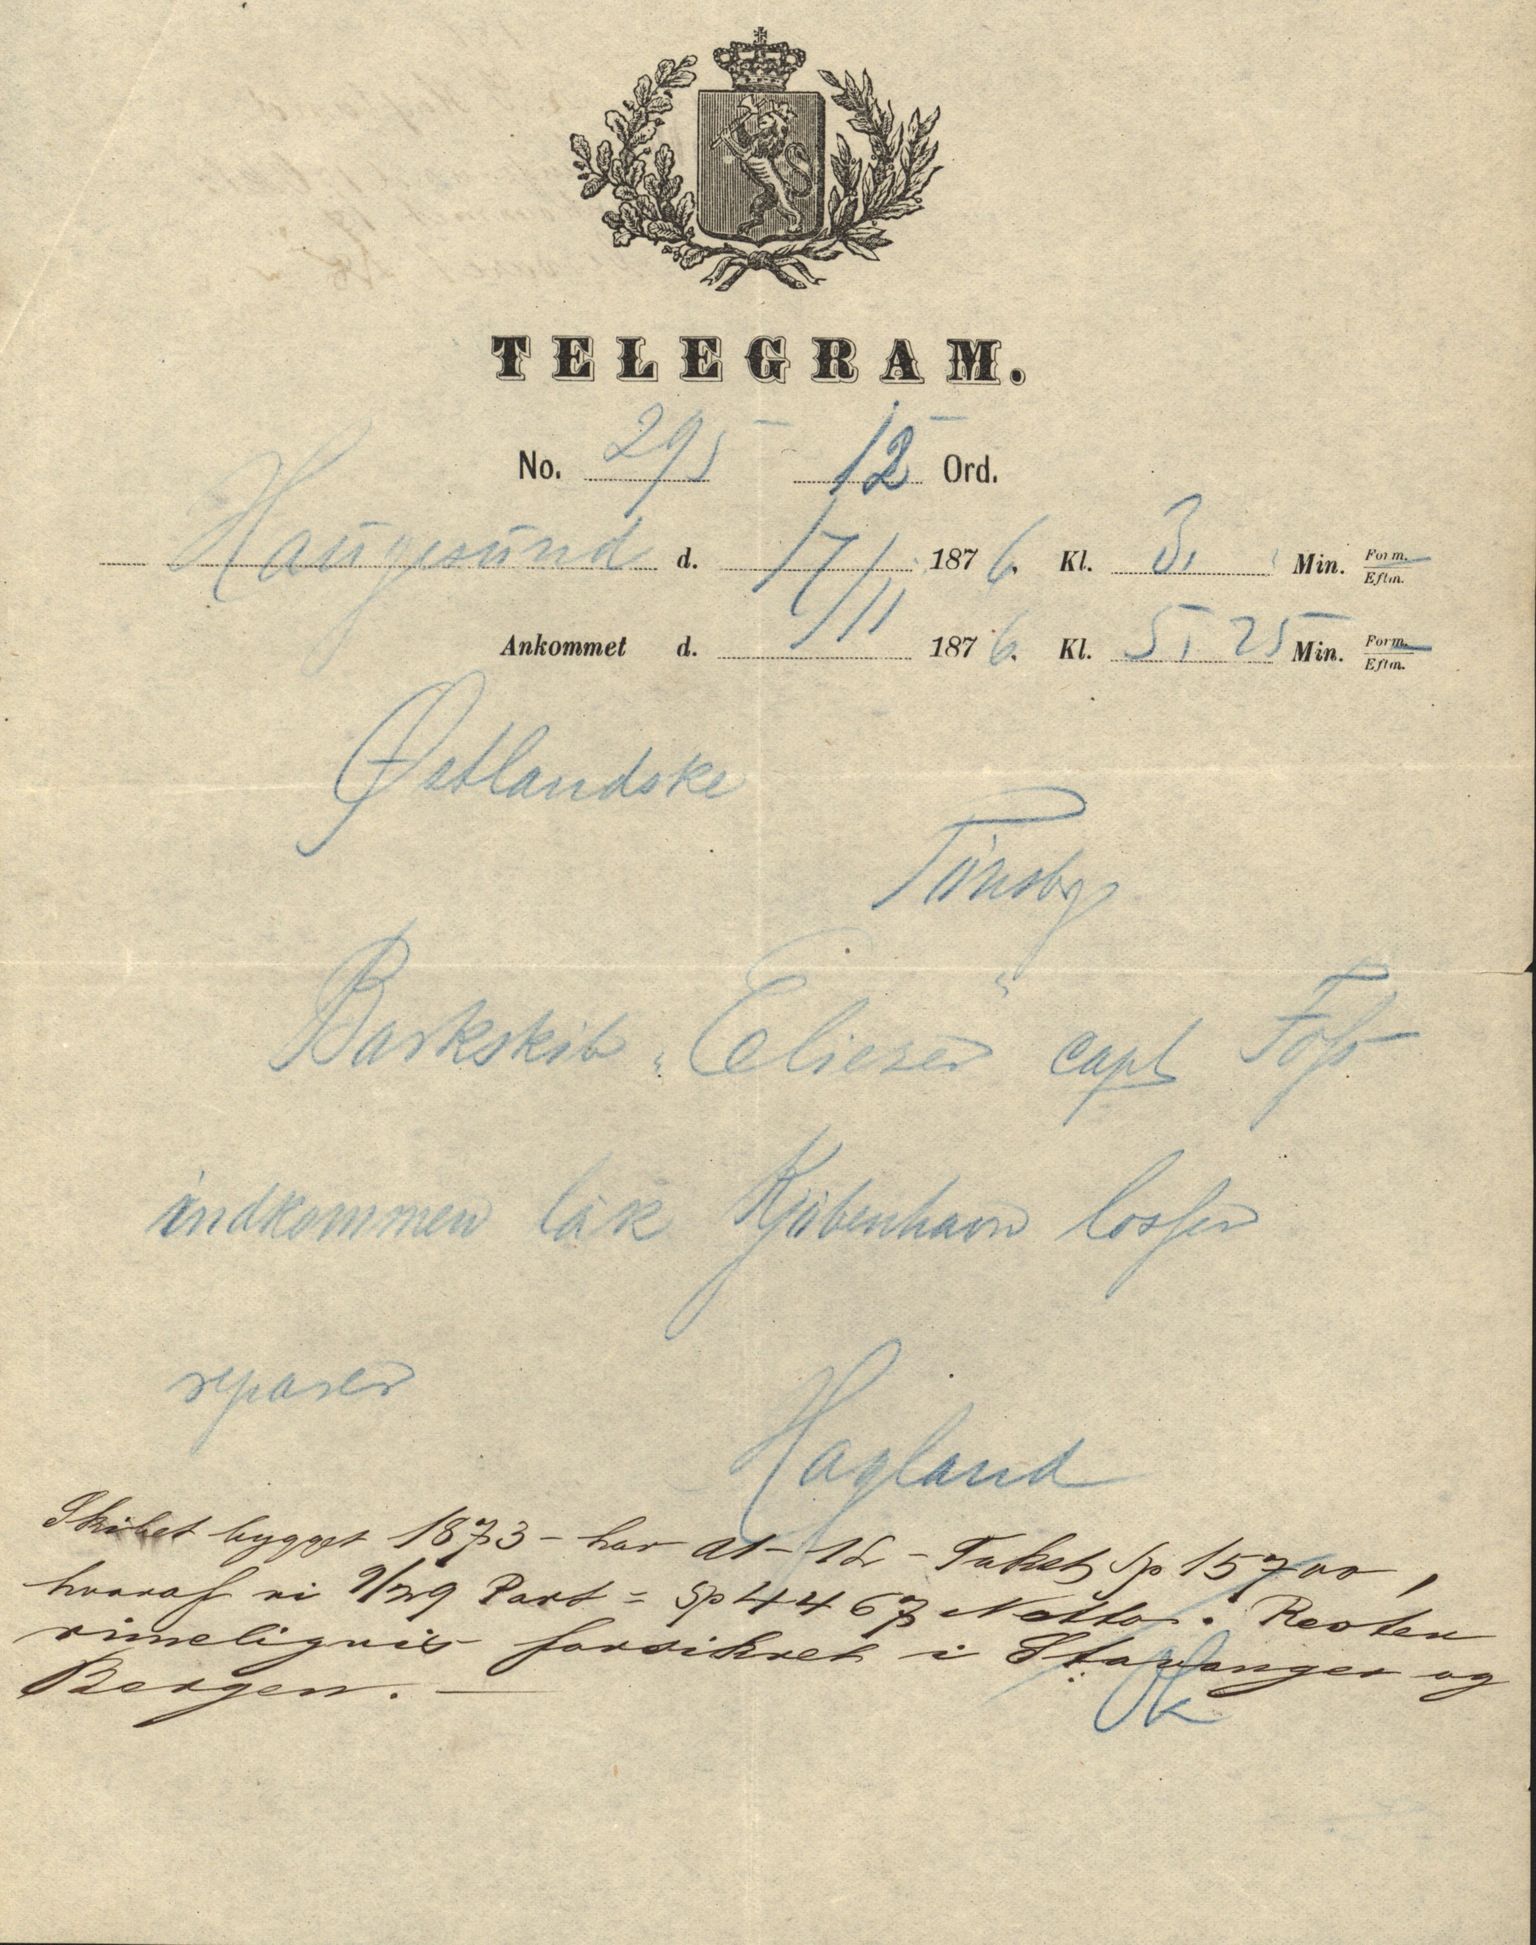 TELEGRAM.
No. 295 12 Ord.
Haugesund d. 17/11 1876. Kl. 3, Min. Form. Eftm.
Ankommet d. 1876. Kl. 5, 25 Min. Form. Eftm.
Østlandske
Tönsbg
Barkskib „Elieser" capt Foss
indkommen læk Kjöbenhavn losser
reparer
Hagland
Skibet bygget 1873 - har A1 - Taket Sp 15700,
hvoraf vi 9/29 Part = Sp 4467 Netto. Resten
rimeligvis forsikret i Stavanger og
Bergen. —